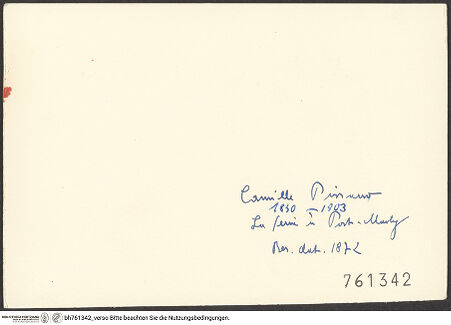 Camille Pissarro
1830 – 1903
La Seine à Port-Marly
Bez. dat. 1872
761342
bh761342_verso Bitte beachten Sie die Nutzungsbedingungen.